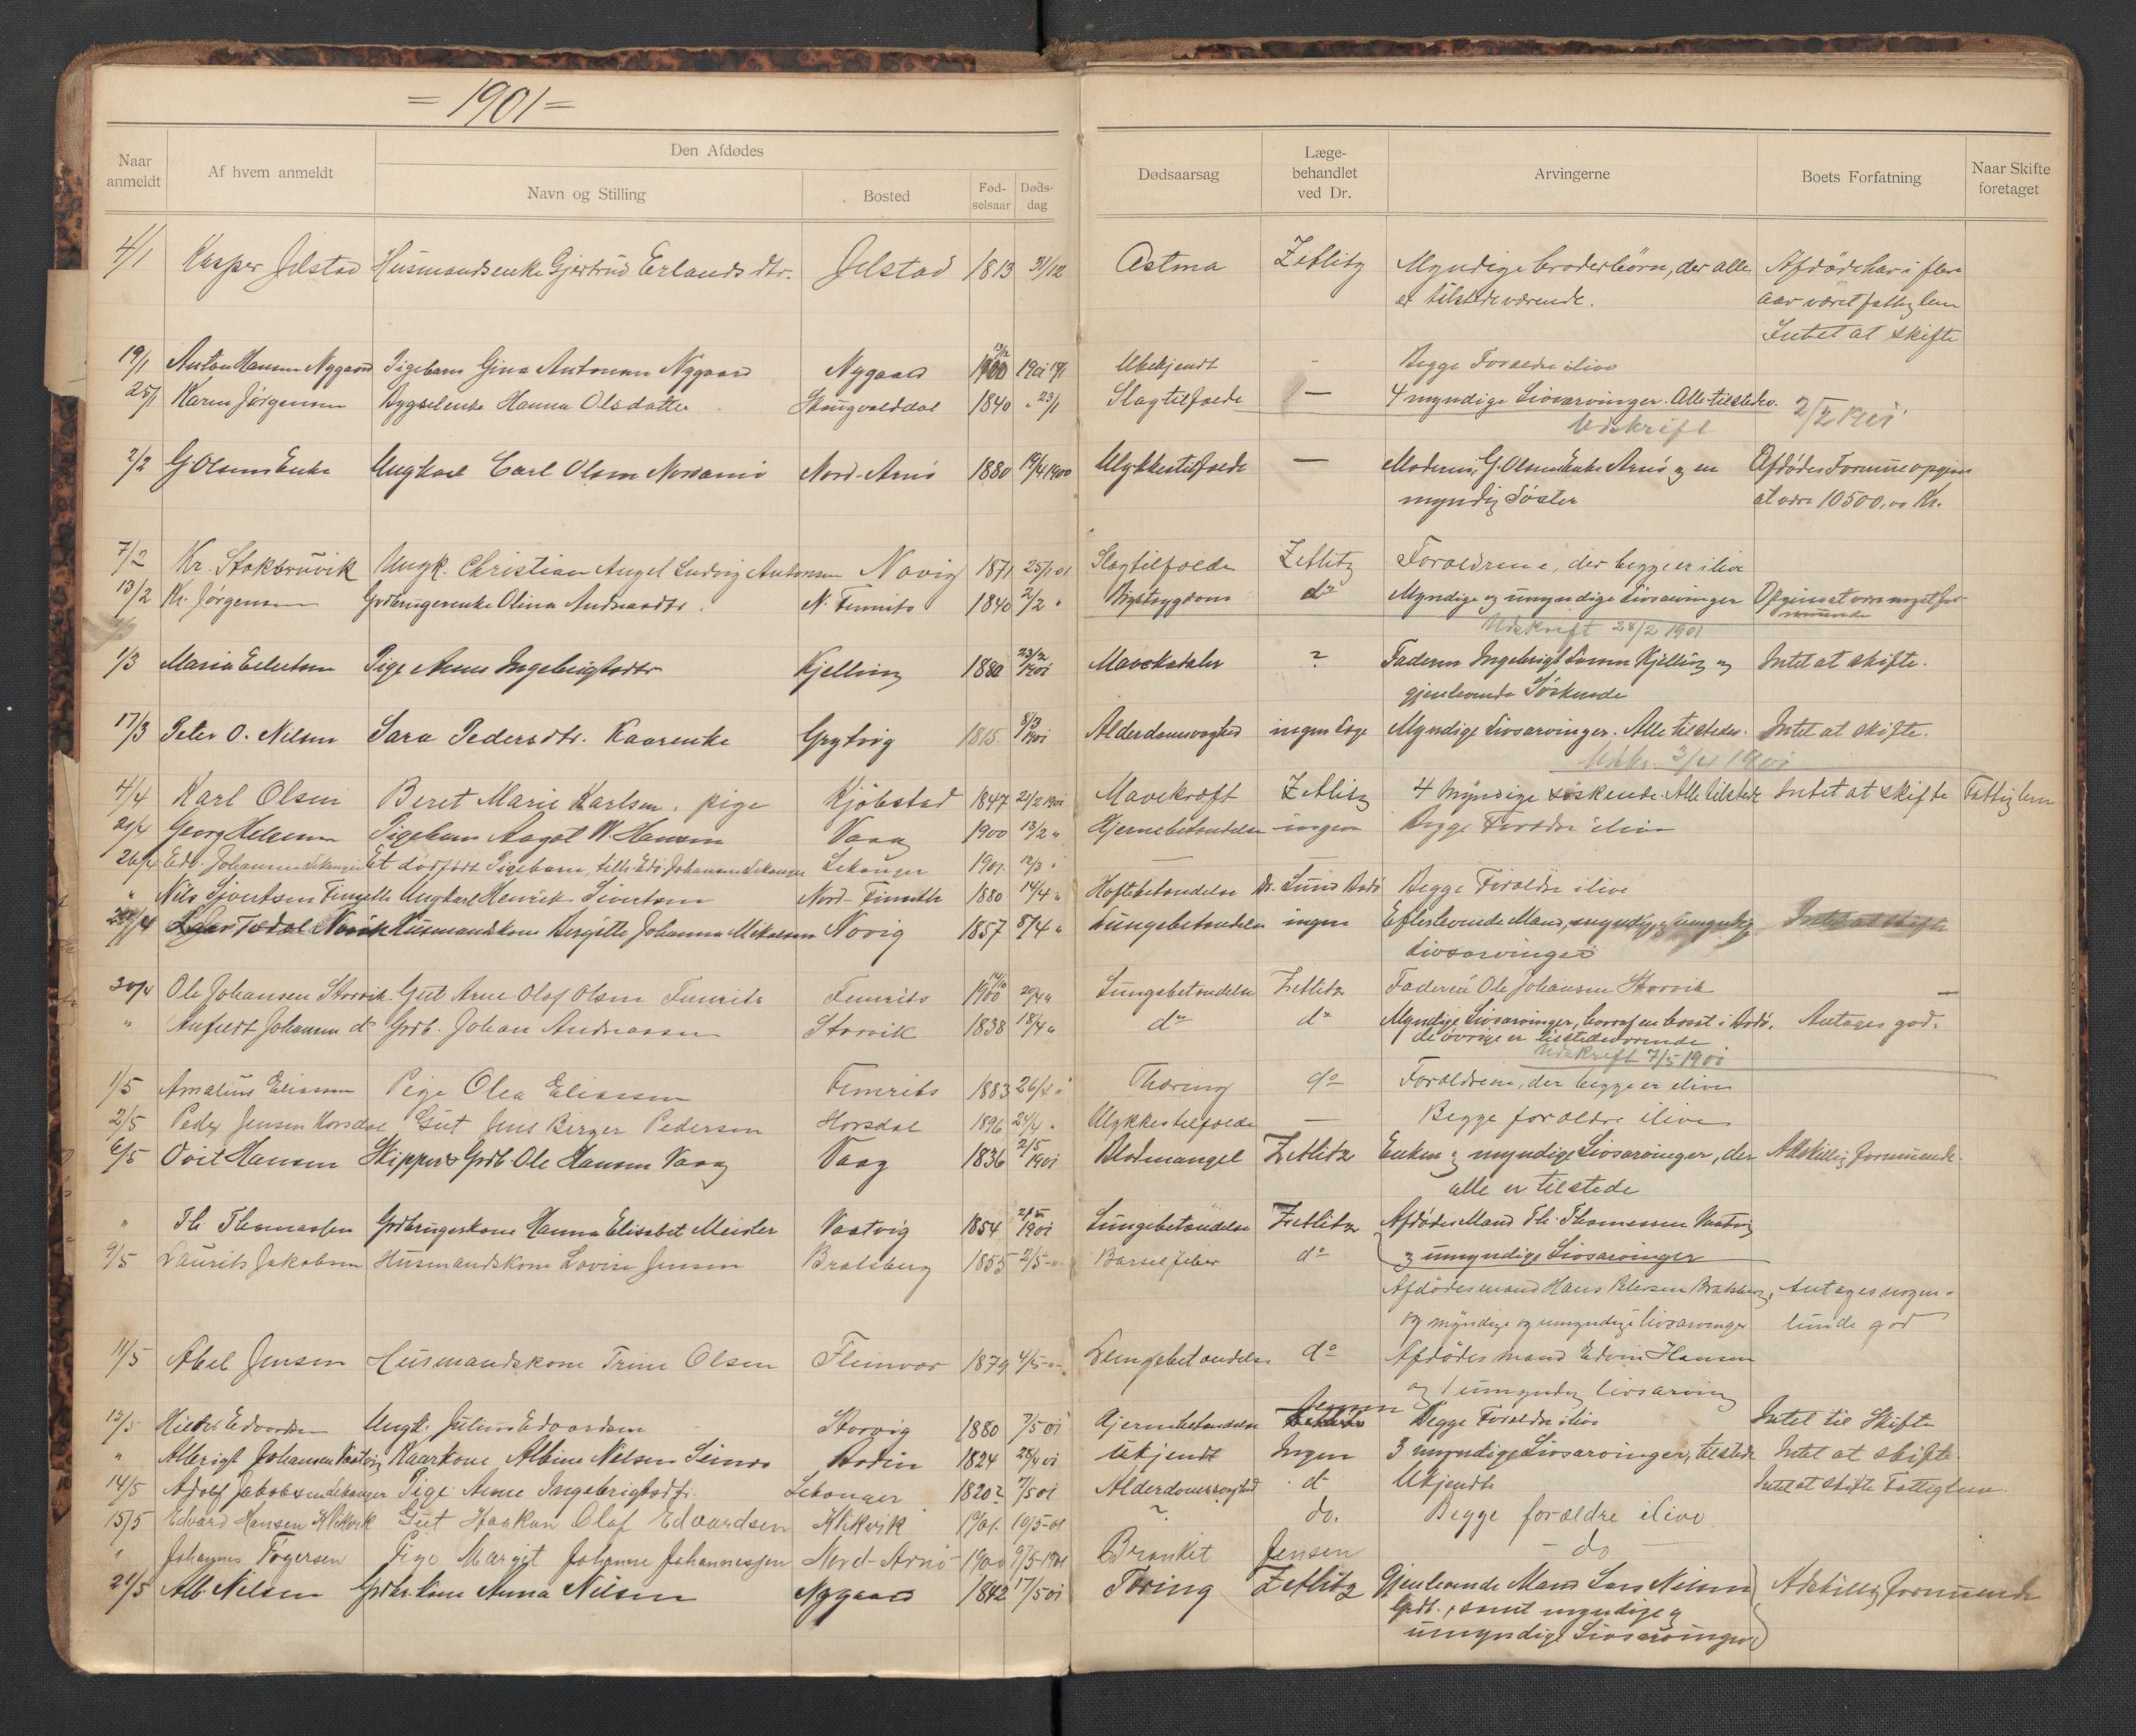 = 1901 =
Naar anmeldt
Af hvem anmeldt
Den Afdødes
Navn og Stilling
Bosted
Fød-selsaar
Døds-dag
Dødsaarsag
Læge-behandlet ved Dr.
Arvingerne
Boets Forfatning
Naar Skifte foretaget
4/1 Kasper Jelstad Husmandsenke Gjertrud Erlandsdtr. Jelstad 1813 31/12 Astma Zetlitz Myndige broderbørn, der alle Afdøde har i flere
er tilstedeværende. aar været fattiglem
Intet at skifte
19/1 Anton Hansen Nygaard Pigebarn Gina Antonsen Nygaard Nygaard 13/12 1900 1901 Ubekjendt - Begge Forældre ilive
25/1 Karen Jørgensen Hanna Olsdatter 1840 " 23/1 Slagtilfælde — 4 myndige Livsarvinger. Alle tilstede.
Udskrift 2/2 1901
2/2 G Olsens Enke Ungkarl Carl Olsen Nordarnø Nord-Arnø 1880 19/4 1900 Ulykkestilfælde — Moderen, G. Olsens Enke Arnø og en Afdødes Formue opgives
myndig Søster at være 10500,00 Kr.
7/2 Kr. Stokbruvik Ungk. Christian Angel Ludvig Antonsen Novig 1871 25/1 01 Slagtilfælde Zetlitz Forældrene, der begge er ilive
13/2 Kr. Jørgensen Grdbrugerenke Olina Andreasdtr. N. Femrits 1840 2/2 " Brystsygdom do Myndige og umyndige Livsarvinger
Udskrift 28/2 1901
1/3 Maria Pige Anna Ingebrigtsdtr Kjelling 1880 23/2 1901 Mavekatahr ? Faderen Ingebrigt Kjelling og Intet at skifte.
gjenlevende Søskende
17/3 Peter O. Nilsen Sara Pedersdtr. Kaarenke Grytvig 1815 8/3 1901 Alderdomssvaghed ingen Læge Myndige Livsarvinger. Alle tilstede. Intet at skifte.
Udskr. 3/4 1901
4/4 Karl Olsen Beret Marie Karlsen. pige Kjøbstad 1847 21/2 1901 Mavekræft Zetlitz 4 Myndige søskende. Alle tilstede Intet at skifte Fattiglem
21/4 Georg Helgesen Pigebarn Aagot W. Hansen Vaag 1900 13/2 " Hjernebetændelse ingen Begge Forældre ilive
26/4 Edv. Johansen Lekanger Et dødfødt Pigebarn, Edv. Johansen Lekanger Lekanger 1901. 12/3 " —
" Nils Sivertsen Ungkarl Henrik Sivertsen Nord-Femrits 1880 14/4 " Hoftebetændelse Dr. Lund Bodø Begge Forældre ilive
Husmandskone Bergitte Johanna Mikalsen Novig 1857 8/4 " Lungebetændelse ingen Efterlevende Mand, myndige og umyndige Intet at skifte
Livsarvinger
30/4 Ole Johansen Storvik Gut Arne Olaf Olsen Femrits Femrits 14/10 1900 20/4 " Lungebetændelse Zetlitz Faderen Ole Johansen Storvik —
" Johansen do Grdb. Johan Andreassen Storvik 1838 18/4 " do do Myndige Livsarvinger, hvoraf en bosat i Bodø, Antages god.
de øvrige er tilstedeværende
Udskrift 7/5 1901
1/5 Amalius Eliassen Pige Olea Eliassen Femrits 1883 26/4 " Thæring do Forældrene, der begge er ilive
2/5 Peder Jensen Horsdal Gut Jens Birger Pedersen Horsdal 1896 24/4 " Ulykkestilfælde — Begge forældre ilive
6/5 Ovit Hansen Skipper & Grdb. Ole Hansen Vaag Vaag 1836 2/5 1901 Blodmangel Zetlitz Enken og myndige Livsarvinger, der Adskillig formuende.
alle er tilstede
" Th. Thomassen Grdbrugerskone Hanna Elisabet Meisler Vaatvig 1854 2/5 1901 Lungebetændelse Zetlitz Afdødes Mand Th. Thomassen Vaatvig
og umyndige Livsarvinger
9/5 Laurits Jakobsen Husmandskone Lovise Jensen Bratsberg 1855 2/5 -"- Barselfeber do
Afdødes mand Hans Petersen Bratsberg, Antages nogen-
og myndige og umyndige livsarvinger lunde god
11/5 Abel Jensen Husmandskone Trine Olsen Fleinvær 1879 4/5 -"- Lungebetændelse do Afdødes mand Edvin Hansen
og 1 umyndig livsarving
13/5 Edvardsen Ungk. Julius Edvardsen Storvig 1880 7/5 01 Hjernebetændelse Jensen Begge Forældre ilive Intet til Skifte
" Albrigt Johansen Vaatvig Kaarkone Albine Nilsen Bodin 1824 28/4 01 Ukjendt Ingen 3 myndige Livsarvinger, tilstede Intet at skifte
14/5 Adolf Jakobsen Lekanger Pige Anne Ingebrigtsdtr. Lekanger 1820? 7/5 01 Alderdomssvaghed do Ukjendte Intet at skifte Fattiglem
15/5 Edvard Hansen Klikvik Gut Haakon Olaf Edvardsen Klikvik 1901. 10/5-01 ? do. Begge forældre ilive
" Johannes Togersen Pige Margit Johanne Johannessen Nord-Arnø 1900 9/5-1901 Bronkit Jensen — do —
21/5 Alb Nilsen Grdbr.kone Anna Nilsen Nygaard 1842 17/5 01 Tæring Zetlitz Gjenlevende Mand Lars Nilsen Adskillig formuende
Grdb., samt myndige og
umyndige Livsarvinger